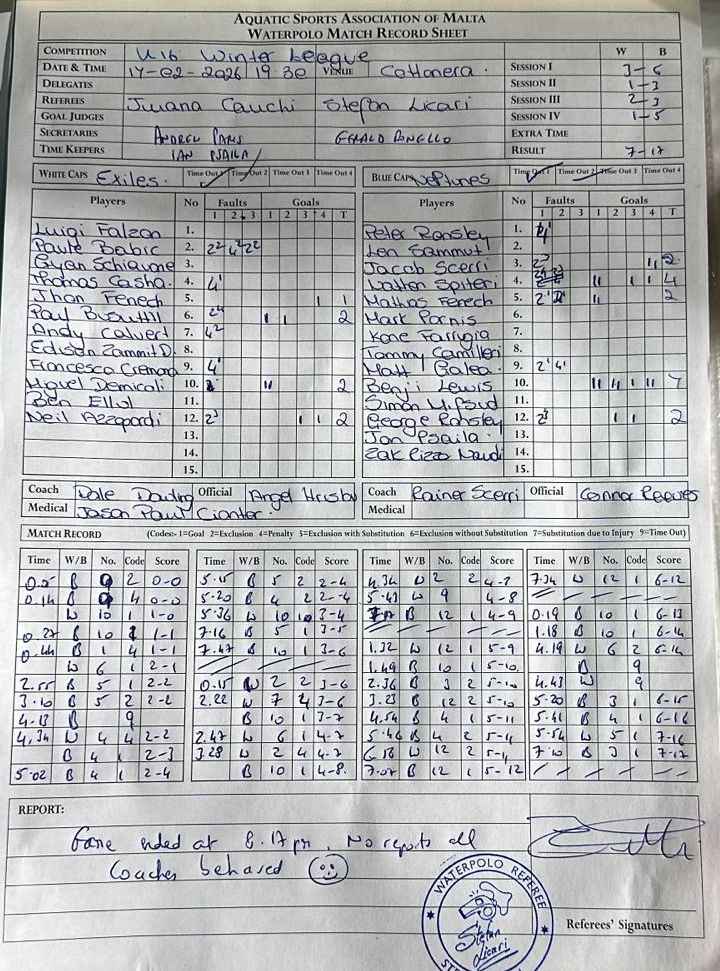 AQUATIC SPORTS ASSOCIATION OF MALTA
WATERPOLO MATCH RECORD SHEET
COMPETITION U16 Winter League W B
DATE & TIME 14-02-2026 19.30 VENUE Cottonera. SESSION I 3-6
DELEGATES SESSION II 1-3
REFEREES Jwana Cauchi Stefan Licari SESSION III 2-3
GOAL JUDGES SESSION IV 1-5
SECRETARIES EXTRA TIME
TIME KEEPERS IAN PSAILA RESULT 7-17
WHITE CAPS Exiles. Time Out 1 Time Out 2 Time Out 3 Time Out 4 BLUE CAPS Neptunes Time Out 1 Time Out 2 Time Out 3 Time Out 4
Players No Faults Goals Players No Faults Goals
1 2 3 1 2 3 4 T 1 2 3 1 2 3 4 T
Luigi Falzon 1. Peter Ransley 1.
2. Len Sammut 2.
Schiavone 3. Jacob Scerri 3. 2
Thomas Casha. 4. Walter Spiteri 4. 4
Jhan Fenech 5. 1 1 Mathias Fenech 5. 2
Paul Busuttil 6. 2 6.
Andy Calvert 7. Farrugia 7.
Edison Zammit D. 8. Tommy Camilleri 8.
Francesca Cremona 9. Matt Galea. 9.
Miguel Demicoli 10. 2 Benji Lewis 10. 7
Ben Ellul 11. Simon Mifsud 11.
Neil Azzopardi 12. 2 George Ransley 12. 2
13. Jan Psaila. 13.
14. Zak Rizzo Naudi 14.
15. 15.
Coach Dale Official Angel Coach Rainer Scerri Official Connor Reeves
Medical Jason Paul Cianter. Medical
MATCH RECORD (Codes:- 1=Goal 2=Exclusion 4=Penalty 5=Exclusion with Substitution 6=Exclusion without Substitution 7=Substitution due to Injury 9=Time Out)
Time W/B No. Code Score Time W/B No. Code Score Time W/B No. Code Score Time W/B No. Code Score
B 2 0-0 5.15 B 5 2 2-4 4.34 W 2 2 4-7 7.34 W 12 1 6-12
0.14 B 4 0-0 5.20 B 4 2 2-4 5.43 W 9 4-8
W 10 1-0 5.36 W 10 3-4 B 12 1 4-9 0.19 B 10 1 6-13
0.27 B 10 1 1-1 7.16 B 5 1 3-5 1.18 B 10 1 6-14
0.44 B 1 4 1-1 7.47 B 10 1 3-6 1.32 W 12 1 5-9 4.19 W 6 2 6-14
W 6 1 2-1 1.49 B 10 1 5-10. B 9
2.55 B 5 1 2-2 0.15 W 2 2 3-6 2.36 B 3 2 5-10 4.43 W 9
3.10 B 5 2 2-2 2.22 W 7 4 3-6 3.23 B 12 2 5-10 5.20 B 3 1 6-15
4.13 B 9 B 10 1 3-7 4.54 B 4 1 5-11 5.41 B 4 1 6-16
4.34 W 4 4 2-2 2.47 W 6 1 4-7 5.46 B 4 2 5-11 5.54 W 5 1 7-16
B 4 1 2-3 3.28 W 2 4 4-7 6.58 W 12 2 5-11 7.10 B 3 1 7-17
5.02 B 4 1 2-4 B 10 1 4-8. 7.07 B 12 1 5-12
REPORT:
Game ended at 8.17pm. No reports all
Coaches behaved
WATERPOLO REFEREE
Stefan
Licari
Referees' Signatures